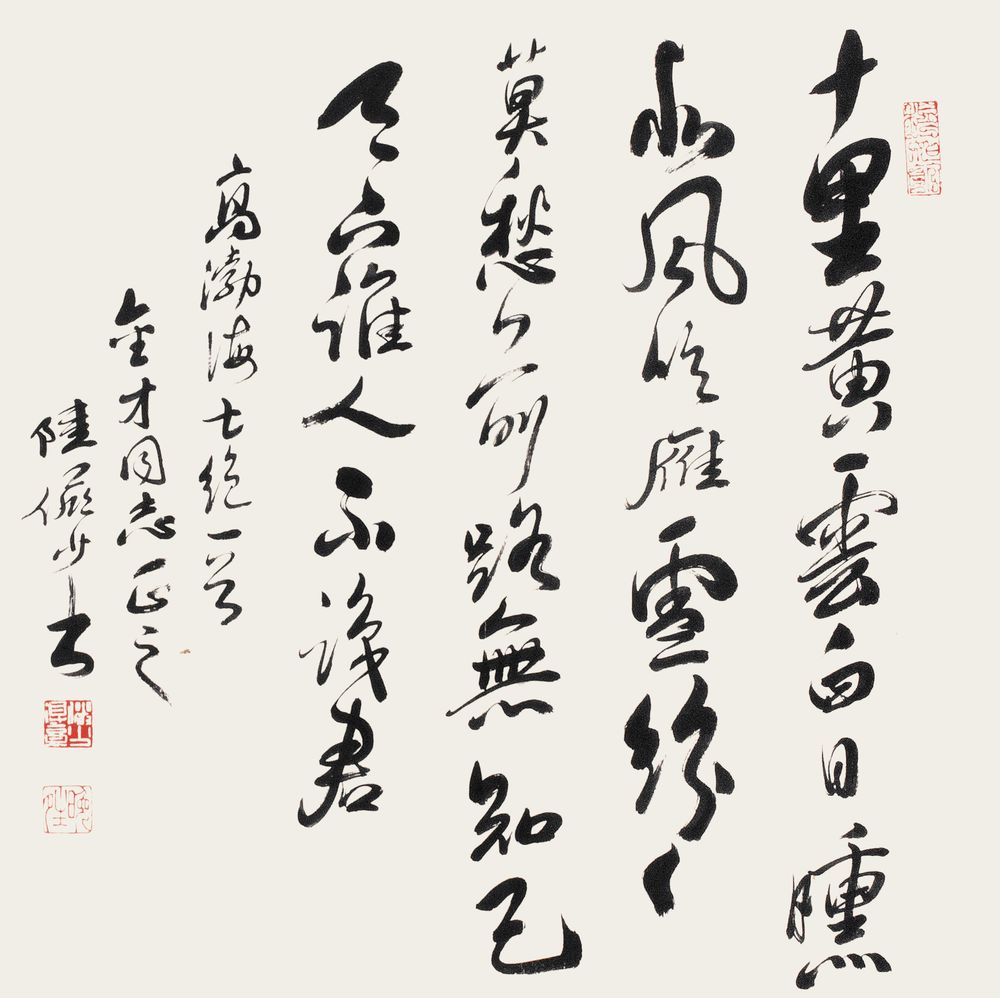 十里黄雲白日曛
北風吹雁雪紛々
莫愁前路無知己
天下誰人不識君
高渤海七絕一首
金才同志正之
陸儼少書